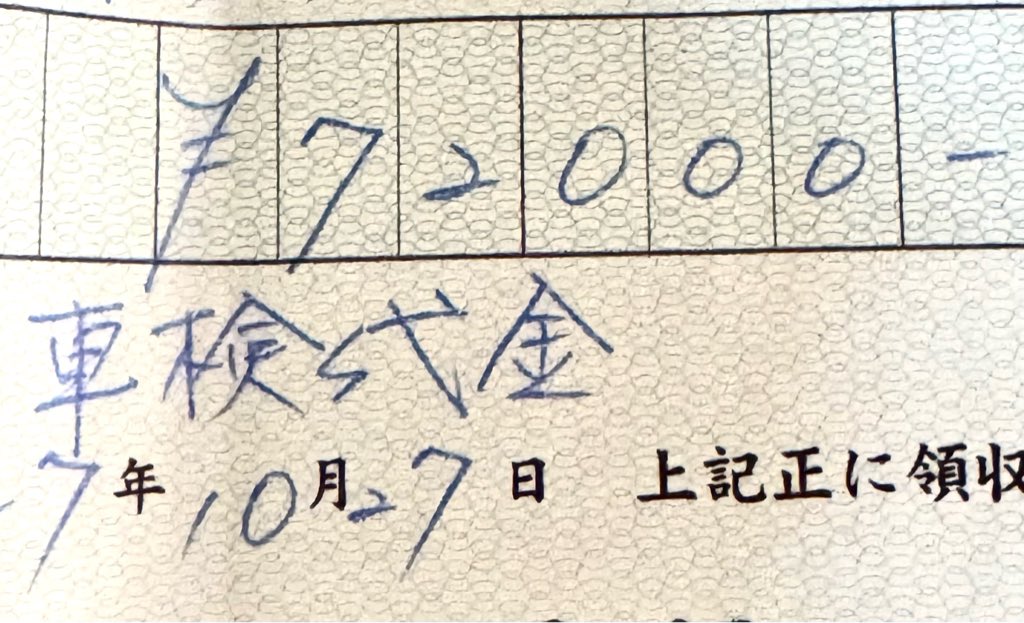 ¥72000-
車検代金
7年10月27日 上記正に領収